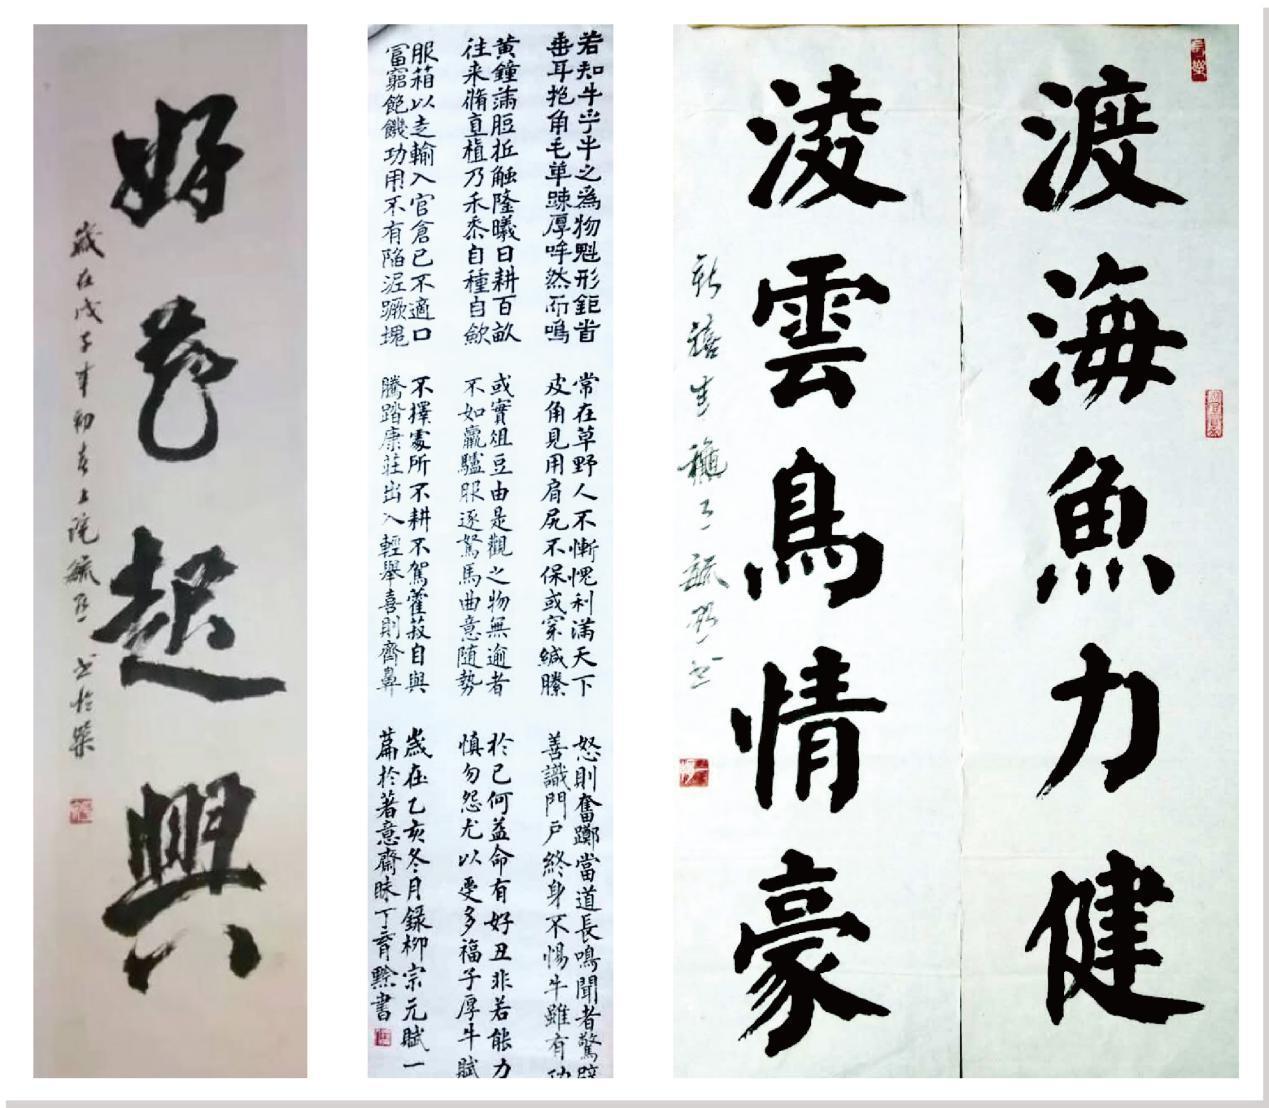 好花起興
歲在戊子年初春上浣毓黔書於築
若知牛乎牛之為物魁形鉅首
垂耳抱角毛革疎厚哞然而鳴
黃鐘滿脰抵觸隆曦日耕百畝
往来脩直植乃禾黍自種自歛
服箱以走輸入官倉已不適口
富窮飽饑功用不有陷泥蹶塊
常在草野人不慚愧利滿天下
皮角見用肩尻不保或穿緘縢
或實俎豆由是觀之物無逾者
不如羸驢服逐駑馬曲意隨勢
不擇處所不耕不駕藿菽自與
騰踏康莊出入輕舉喜則齊鼻
怒則奮躑當道長鳴聞者驚辟
善識門戶終身不惕牛雖有功
於已何益命有好丑非若能力
慎勿怨尤以受多福子厚牛賦
歲在乙亥冬月錄柳宗元賦一
篇於著意齋昧丁育黔書
渡海魚力健
淩雲鳥情豪